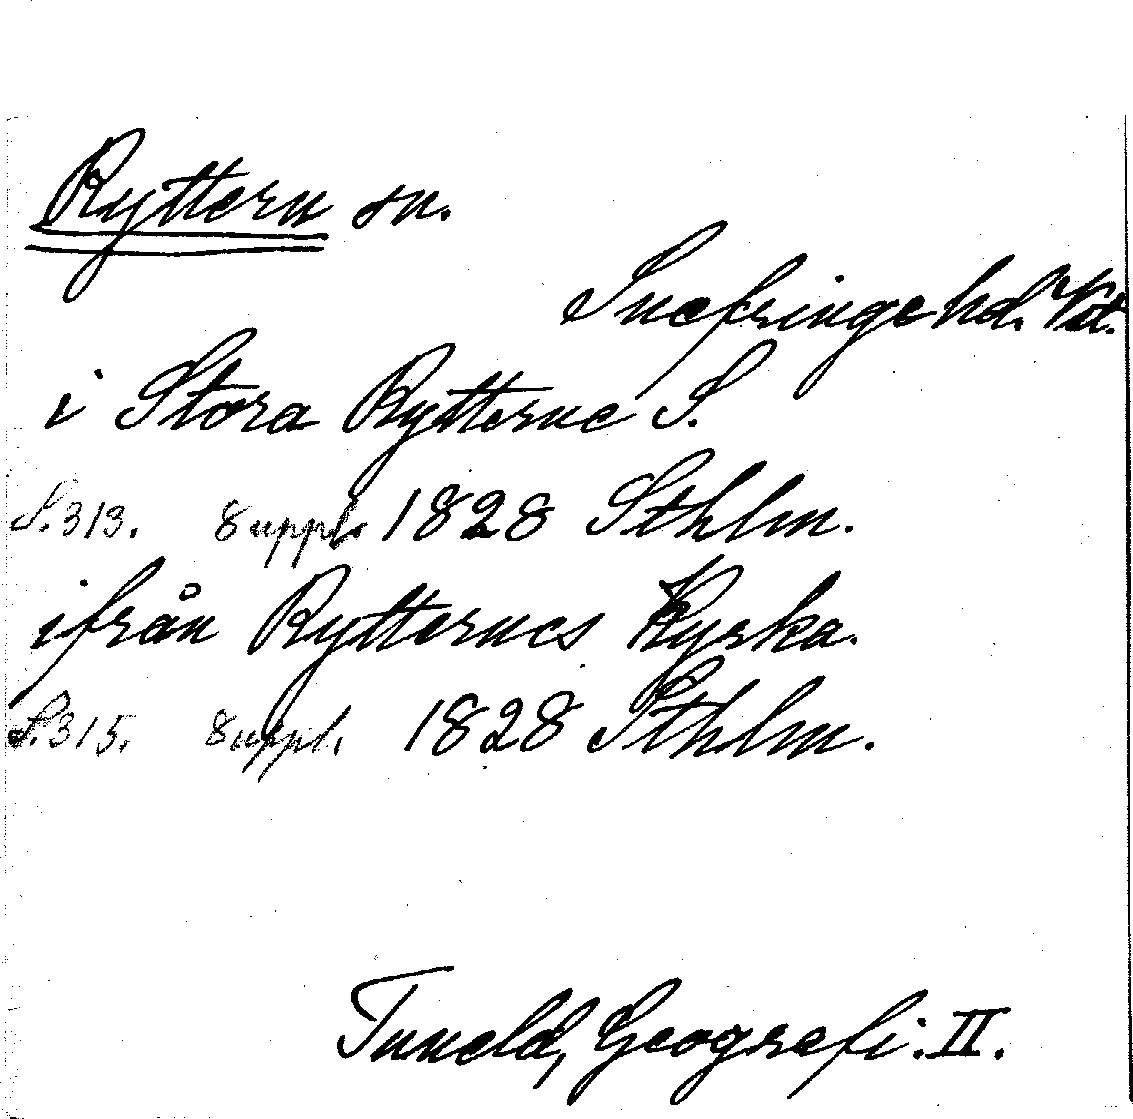 Ryttern sn.
Snefringe hd. Vst.
i Stora Rytterne S.
S. 313. 8 uppl. 1828 Sthlm.
ifrån Rytternes Kyrka.
S. 315. 8 uppl. 1828 Sthlm.
Tuneld, Geografi. II.